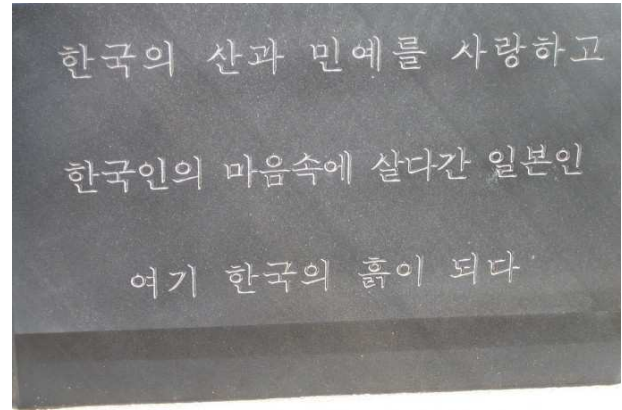 한국의 산과 민예를 사랑하고
한국인의 마음속에 살다간 일본인
여기 한국의 흙이 되다